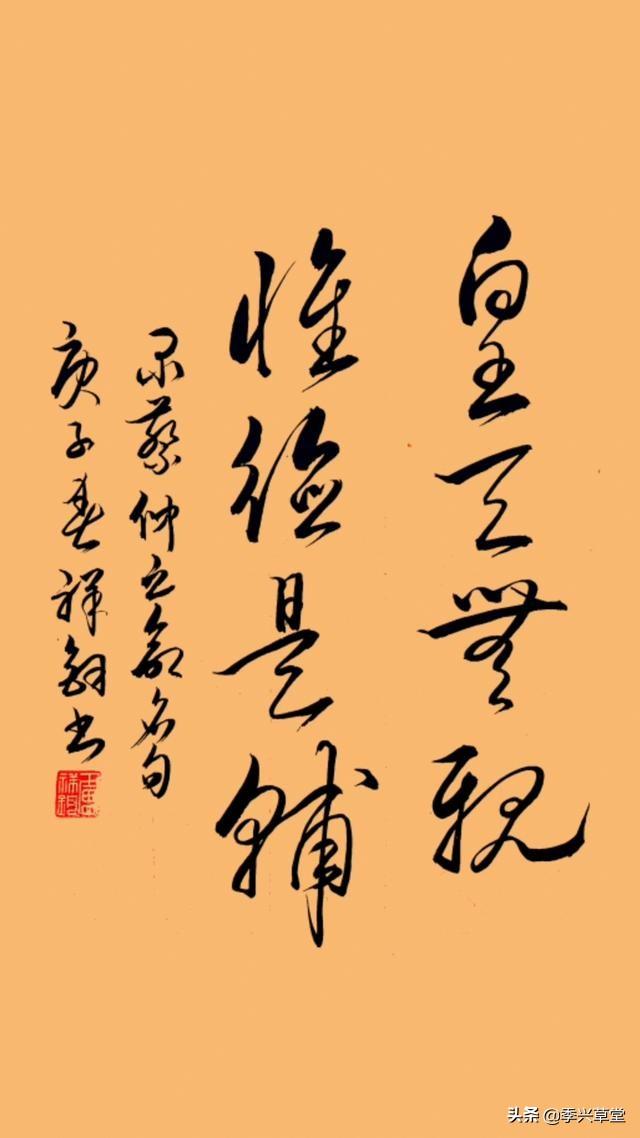 皇天無親
惟德是輔
录蔡仲之命名句
庚子春祥鈞书
头条 @季兴草堂